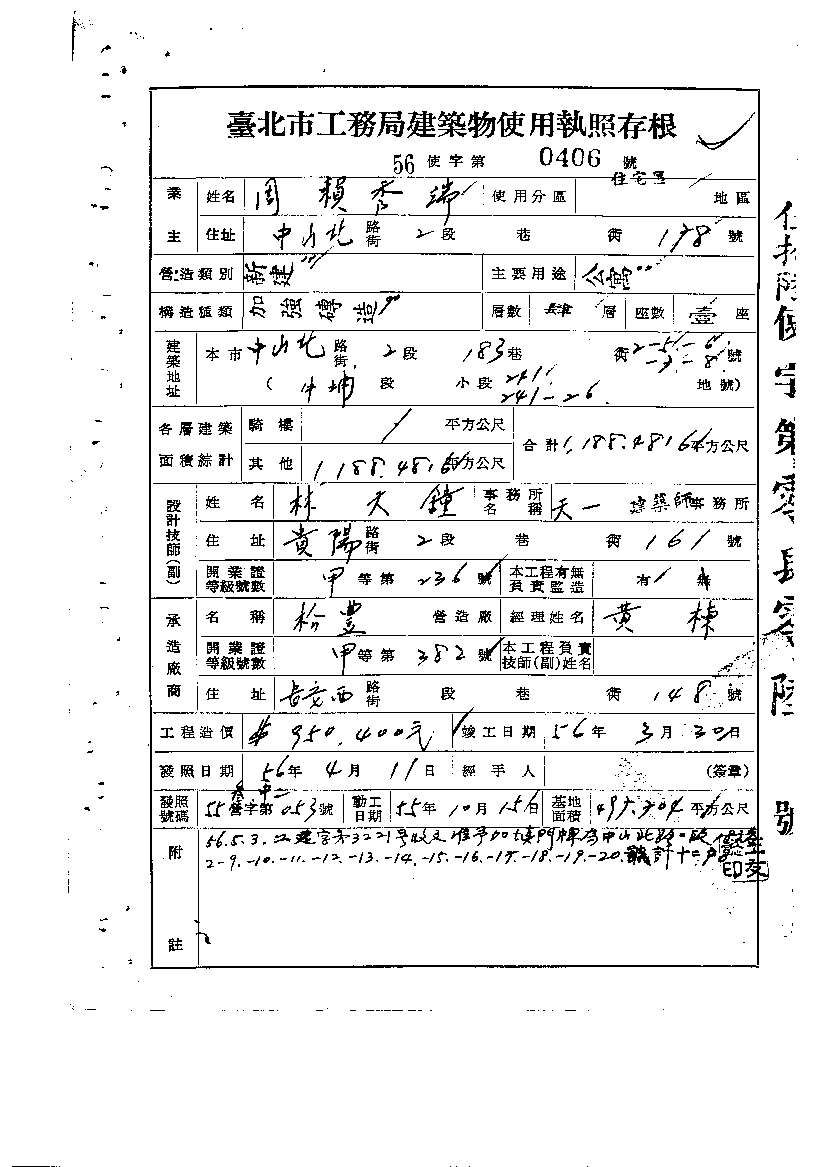 臺北市工務局建築物使用執照存根
56 使字第 0406 號
業主 姓名 周賴香瑞 使用分區 住宅區 地區
住址 中山北路街 2段 巷 街 178號
營造類別 新建 主要用途 公寓
構造種類 加強磚造 層數 層 座數 壹 座
建築地址 本市 中山北路街 2段 183巷 街 2-5-6-7-8號
( 中埔段 小段 241. 241-26 地號)
各層建築面積綜計 騎樓 / 平方公尺 合計 1,188.4816平方公尺
其他 1188.4816平方公尺
設計技師(副) 姓名 林天鐘 事務所名稱 天一 建築師事務所
住址 貴陽路街 2段 巷 街 161號
開業證等級號數 甲等第236號 本工程有無負責監造 有
承造廠商 名稱 松豐 營造廠 經理姓名 黃棟
開業證等級號數 甲等第382號 本工程負責技師(副)姓名
住址 長安西路街 段 巷 街 148號
工程造價 $950,400元 竣工日期 56年3月30日
發照日期 56年4月11日 經手人 (簽章)
發照號碼 55營字第053號 動工日期 55年10月15日 基地面積 平方公尺
附註 56.5.3.工建字第3221號收文准予加填門牌為中山北路二段
2-9.-10.-11.-12.-13.-14.-15.-16.-17.-18.-19.-20. 計十二戶
使字第零肆零陸號